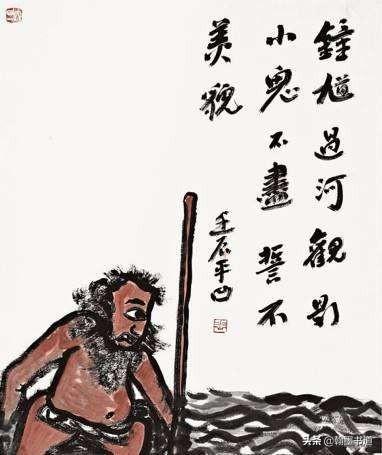 鐘馗過河觀影
小鬼不盡誓不
美貌
壬辰平凹
头条 @翰墨书道